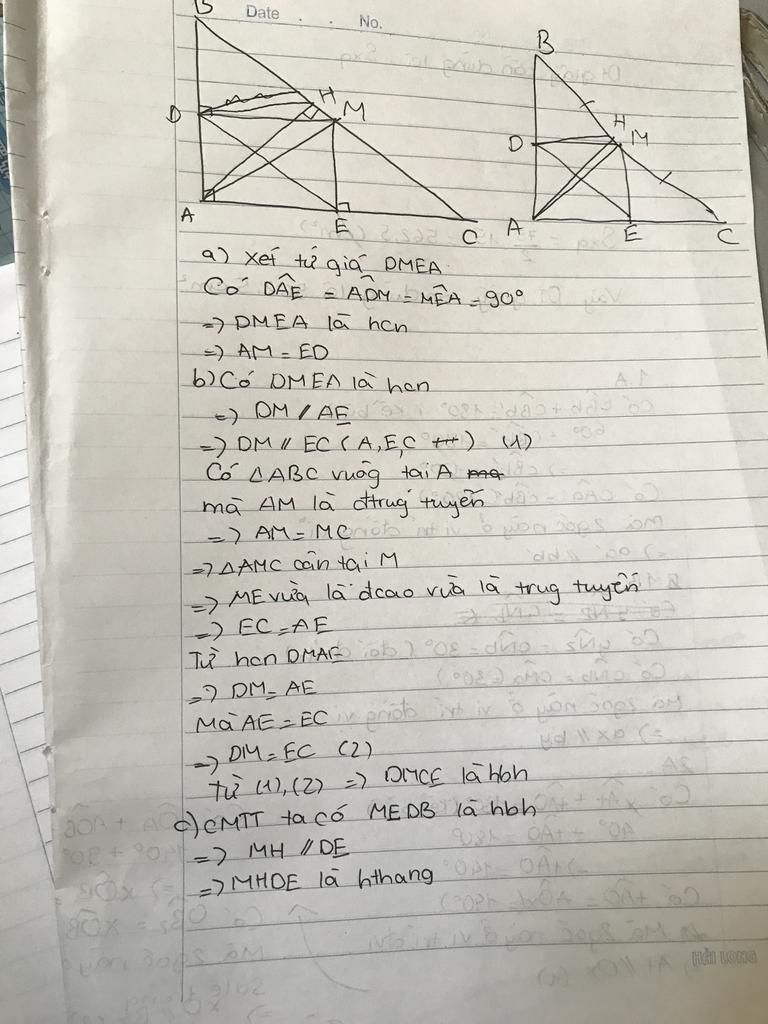 Date . . No.
B
D
H
M
A
E
C
B
D
H
M
A
E
C
a) Xét tứ giá DMEA
Có DÂE = AD̂M = MÊA = 90°
=> DMEA là hcn
=> AM = ED
b) Có DMEA là hcn
=> DM // AE
=> DM // EC (A,E,C) (1)
Có △ABC vuôg tại A
mà AM là đtrug tuyến
=> AM = MC
=> △AMC cân tại M
=> ME vừa là đcao vừa là trug tuyến
=> EC = AE
Từ hcn DMAE
=> DM = AE
Mà AE = EC
=> DM = EC (2)
Từ (1), (2) => DMCE là hbh
c) CMTT ta có MEDB là hbh
=> MH // DE
=> MHDE là hthang
HẢI LONG